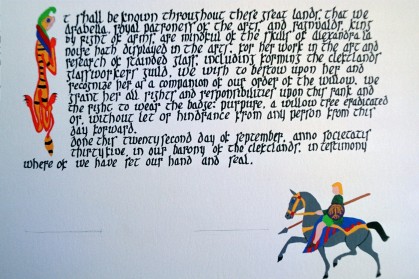 It shall be known throughout these great lands that we
arabella, royal patroness of the arts, and rainvaldr, king
by right of arms, are mindful of the skills of alexandra la
noire hath displayed in the arts. for her work in the art and
research of stained glass, including forming the cleftlands
glassworkers guild, we wish to bestow upon her and
recognize her as a companion of our order of the willow. we
grant her all rights and responsibilities upon this rank and
the right to wear the badge: purpure, a willow tree eradicated
or, without let or hindrance from any person from this
day forward.
done this twentysecond day of september, anno societatis
thirtyfive, in our barony of the cleftlands, in testimony
where of we have set our hand and seal.